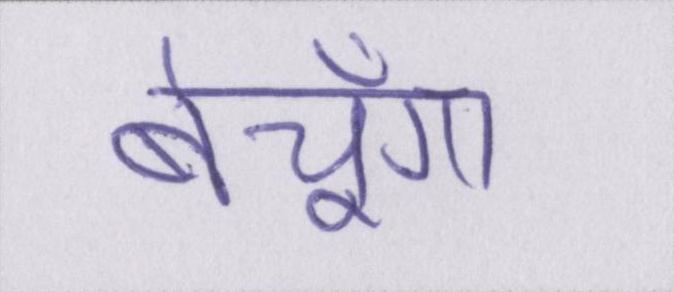 बेचूँगा